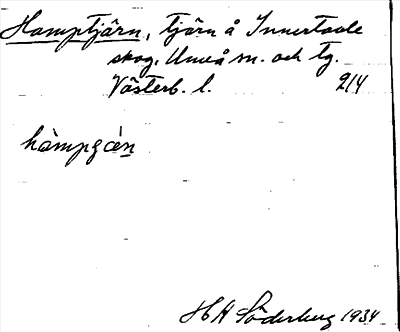 Hamptjärn, tjärn å Innertavle
skog, Umeå sn. och tg.
Västerb. l. 214
hàmpǥǽn
HH Söderberg 1934